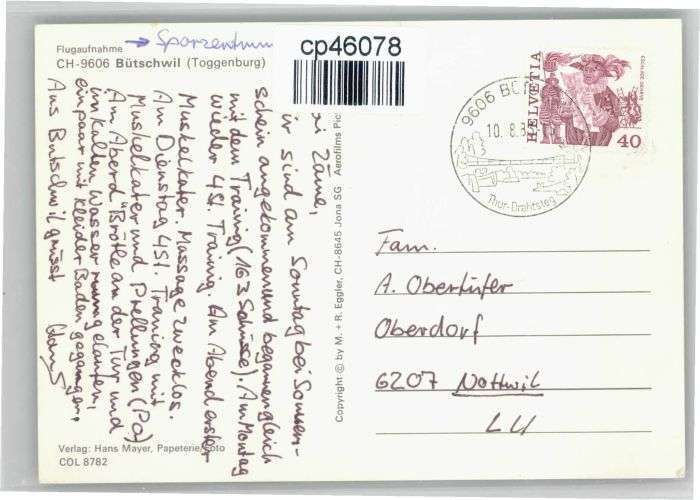 Flugaufnahme → Sporzentrum
CH-9606 Bütschwil (Toggenburg)
cp46078
HELVETIA
40
9606 BÜ
10.8.8
Thur-Drahtsteg
Zäme,
ir sind am Sonntag bei Sonnen-
schein angekommen und begannen gleich
mit dem Training (163 Schüsse). Am Montag
wieder 4 St. Training. Am Abend erster
Muskelkater. Massage zwecklos.
Am Dienstag 4 St. Training mit
Muskelkater und Prellungen (Po)
Am Abend "Brötle an der Tur und
im kalten Wasser rumgelaufen,
ein paar mit kleider Baden gegangen.
Aus Bütschwil grüsst
Copyright © by M. + R. Eggler, CH-8645 Jona SG Aerofilms Pic
Fam.
A. Oberhüfer
Oberdorf
6207 Nottwil
LU
Verlag: Hans Mayer, Papeterie/Foto
COL 8782